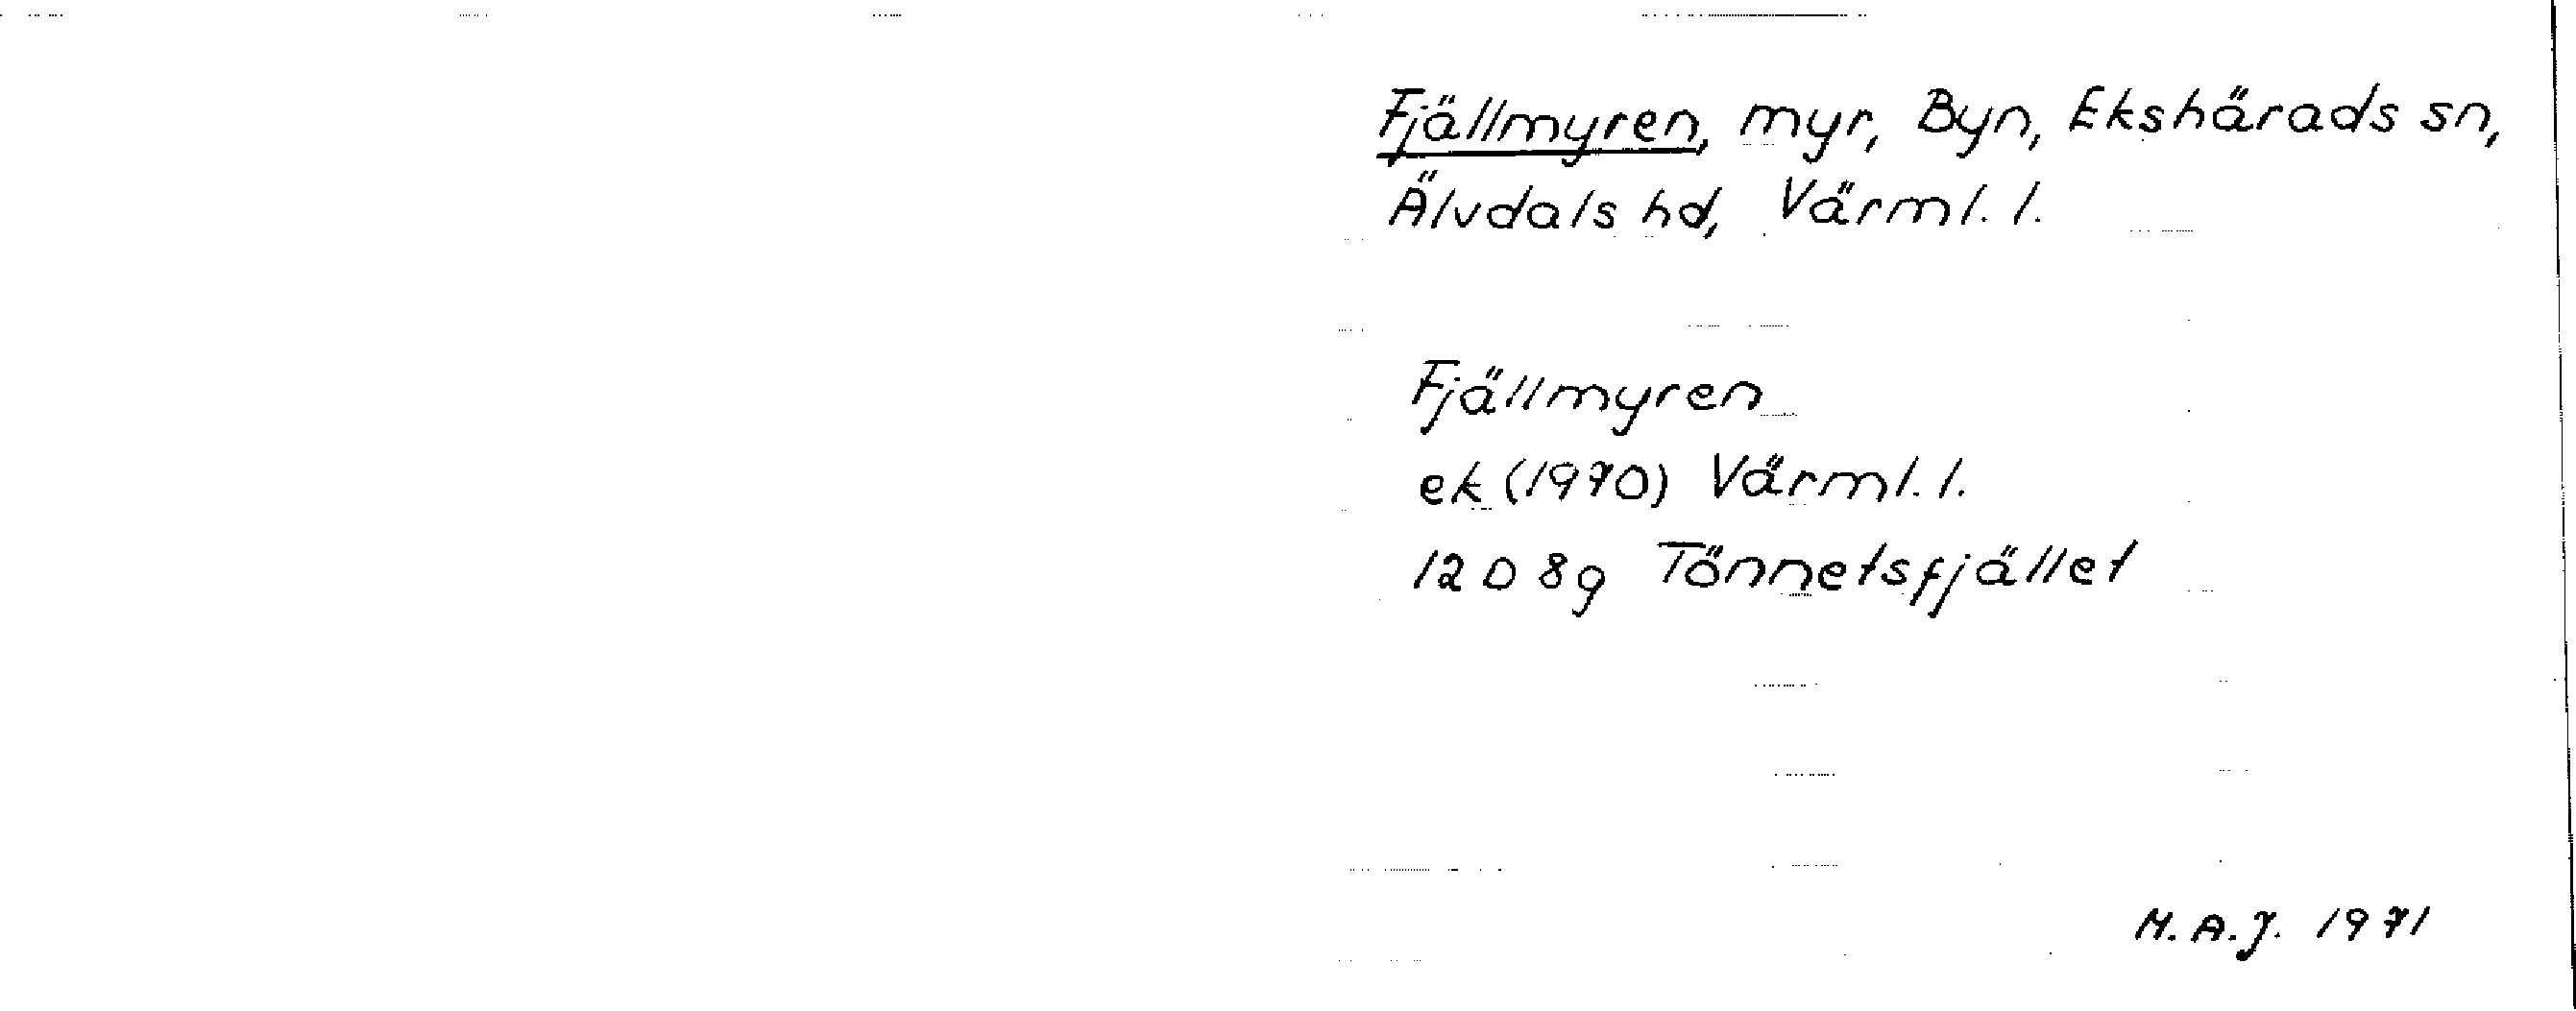 Fjällmyren, myr, Byn, Ekshärads sn,
Älvdals hd, Värml. l.
Fjällmyren
ek (1970) Värml. l.
12 D 8g Tönnetsfjället
M. A. J. 1971